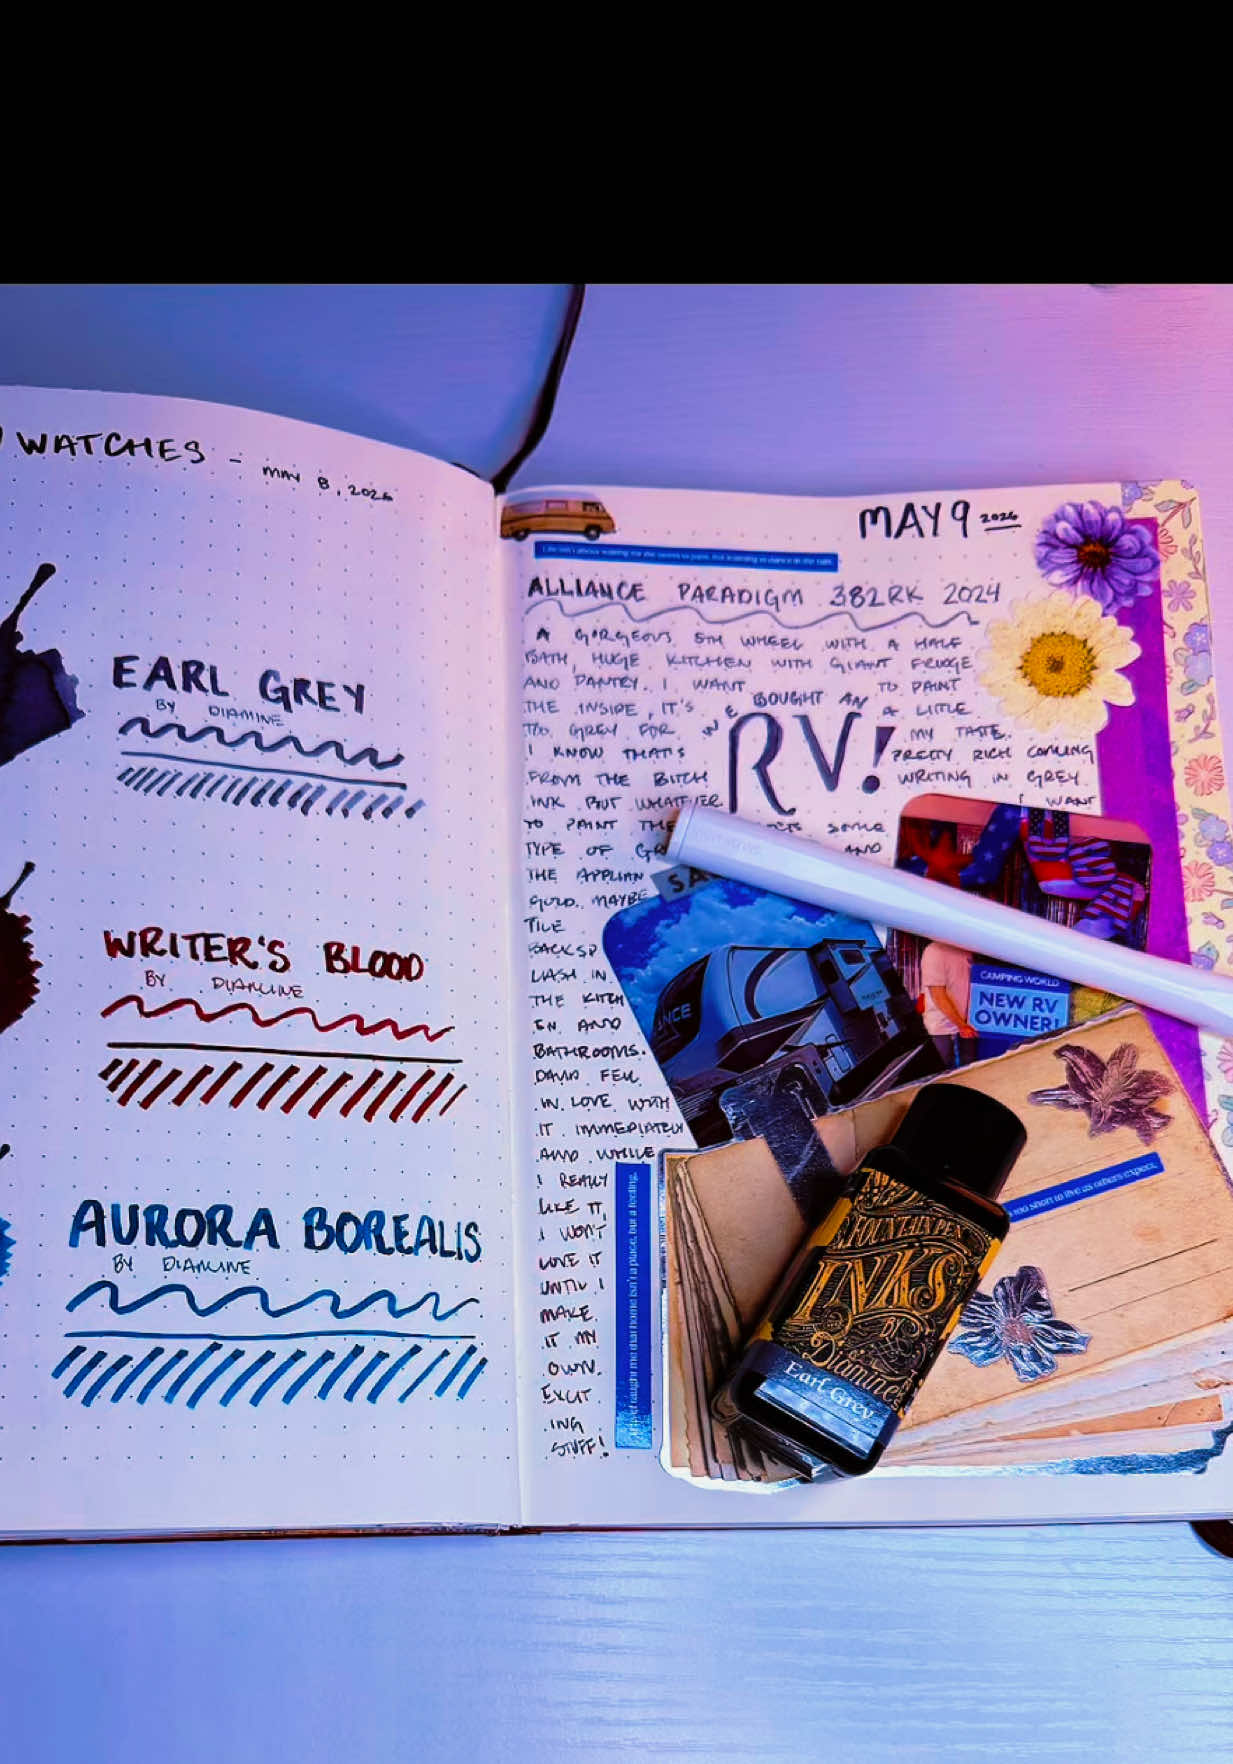 WATCHES - MAY 8, 2026
EARL GREY
BY DIAMINE
WRITER'S BLOOD
BY DIAMINE
AURORA BOREALIS
BY DIAMINE
MAY 9 2026
ALLIANCE PARADIGM 382RK 2024
A GORGEOUS 5TH WHEEL WITH A HALF
BATH, HUGE KITCHEN WITH GIANT FRIDGE
AND PANTRY. I WANT TO PAINT
THE INSIDE, IT'S A LITTLE
TOO GREY FOR MY TASTE.
WE BOUGHT AN
RV!
I KNOW THAT'S PRETTY RICH COMING
FROM THE BITCH WRITING IN GREY
INK BUT WHATEVER I WANT
TO PAINT THE SOME
TYPE OF AND
THE
GOLD. MAYBE
TILE
BACKSP
LASH IN
THE KITCH
EN AND
BATHROOMS.
DAVID FELL
IN LOVE WITH
IT IMMEDIATELY
AND WHILE
I REALLY
LIKE IT,
I WON'T
LOVE IT
UNTIL I
MAKE
IT MY
OWN.
EXCIT
ING
STUFF!
CAMPING WORLD
NEW RV
OWNER!
taught me that home isn't a place, but a feeling.
too short to live as others expect.
FOUNTAIN PEN
INKS
BY
Diamine
Earl Grey